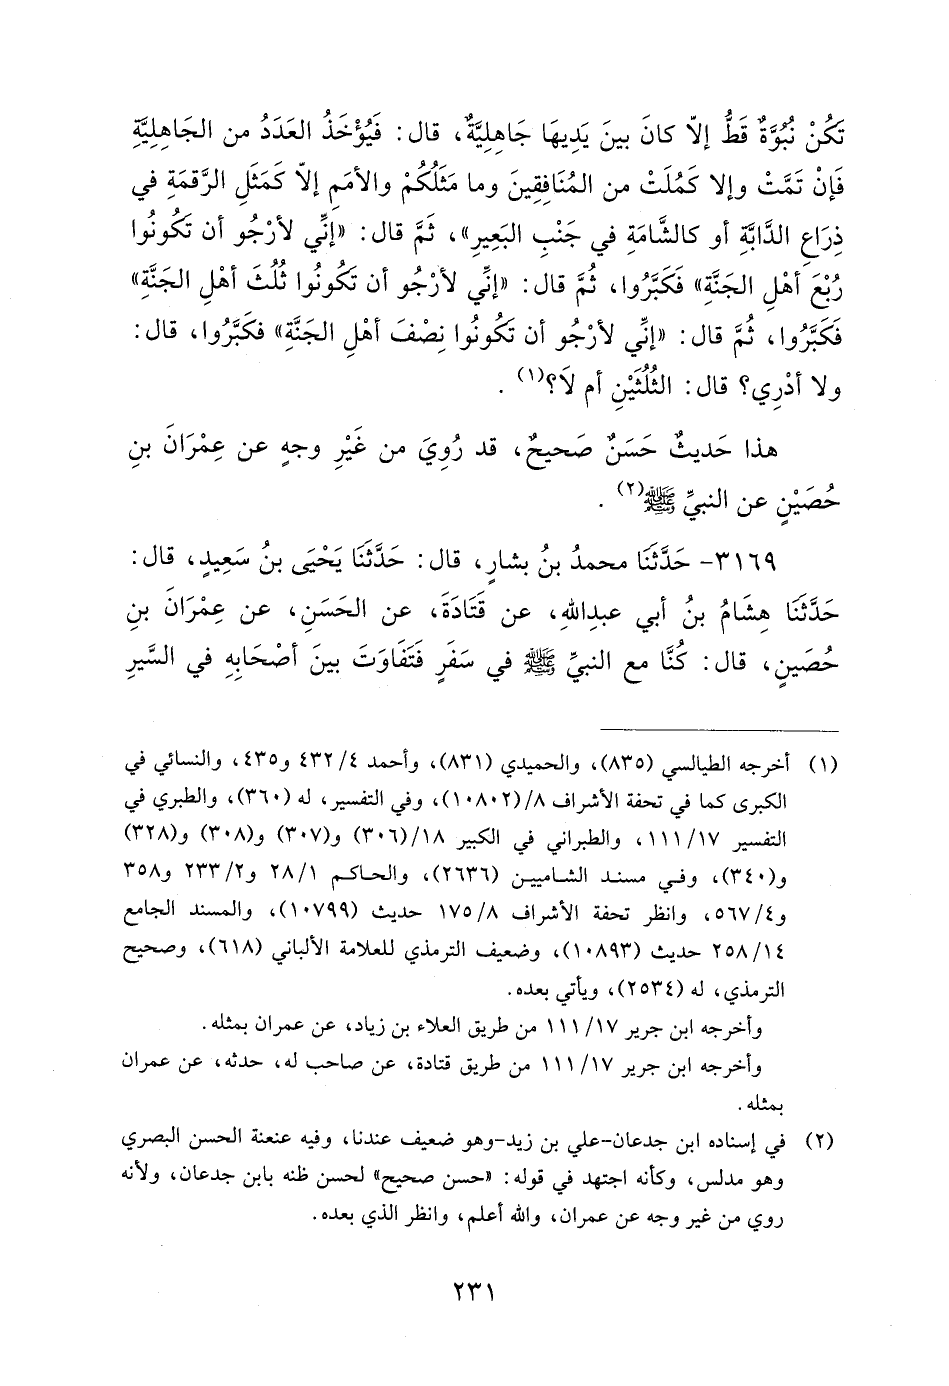 تَكُنْ نُبُوَّةٌ قَطُّ إلاّ كانَ بينَ يَدِيهَا جَاهِلِيَّةٌ، قال: فَيُؤْخَذُ العَدَدُ من الجَاهِلِيَّةِ
فَإنْ تَمَّتْ وإلا كَمُلَتْ من المُنَافِقِينَ وما مَثَلُكُمْ والأمَمِ إلاّ كَمَثَلِ الرَّقمَةِ في
ذِرَاعِ الدَّابَّةِ أو كالشَّامَةِ في جَنْبِ البَعِيرِ»، ثَمَّ قال: «إنِّي لأرْجُو أن تَكُونُوا
رُبْعَ أهْلِ الجَنَّةِ» فَكَبَّرُوا، ثُمَّ قال: «إنِّي لأرْجُو أن تَكُونُوا ثُلُثَ أهْلِ الجَنَّةِ»
فَكَبَّرُوا، ثُمَّ قال: «إنِّي لأرْجُو أن تَكُونُوا نِصْفَ أهْلِ الجَنَّةِ» فكَبَّرُوا، قال:
ولا أدْرِي؟ قال: الثُلُثَيْنِ أم لاَ؟(١) .
هذا حَديثٌ حَسَنٌ صَحيحٌ، قد رُوِيَ من غَيْرِ وجهٍ عن عِمْرَانَ بنِ
حُصَيْنٍ عن النبيِّ ﷺ(٢) .
٣١٦٩- حَدَّثَنَا محمدُ بنُ بشارٍ، قال: حَدَّثَنَا يَحْيَى بنُ سَعِيدٍ، قال:
حَدَّثَنَا هِشَامُ بنُ أبي عبدِاللهِ، عن قَتَادَةَ، عن الحَسَنِ، عن عِمْرَانَ بنِ
حُصَينٍ، قال: كُنَّا مع النبيِّ ﷺ في سَفَرٍ فَتَفَاوَتَ بينَ أصْحَابِهِ في السَّيرِ
(١) أخرجه الطيالسي (٨٣٥)، والحميدي (٨٣١)، وأحمد ٤/ ٤٣٢ و٤٣٥، والنسائي في
الكبرى كما في تحفة الأشراف ٨/(١٠٨٠٢)، وفي التفسير، له (٣٦٠)، والطبري في
التفسير ١٧/ ١١١، والطبراني في الكبير ١٨/(٣٠٦) و(٣٠٧) و(٣٠٨) و(٣٢٨)
و(٣٤٠)، وفي مسند الشاميين (٢٦٣٦)، والحاكم ١/ ٢٨ و٢/ ٢٣٣ و٣٥٨
و٤/ ٥٦٧، وانظر تحفة الأشراف ٨/ ١٧٥ حديث (١٠٧٩٩)، والمسند الجامع
١٤/ ٢٥٨ حديث (١٠٨٩٣)، وضعيف الترمذي للعلامة الألباني (٦١٨)، وصحيح
الترمذي، له (٢٥٣٤)، ويأتي بعده.
وأخرجه ابن جرير ١٧/ ١١١ من طريق العلاء بن زياد، عن عمران بمثله.
وأخرجه ابن جرير ١٧/ ١١١ من طريق قتادة، عن صاحب له، حدثه، عن عمران
بمثله.
(٢) في إسناده ابن جدعان-علي بن زيد-وهو ضعيف عندنا، وفيه عنعنة الحسن البصري
وهو مدلس، وكأنه اجتهد في قوله: «حسن صحيح» لحسن ظنه بابن جدعان، ولأنه
روي من غير وجه عن عمران، والله أعلم، وانظر الذي بعده.
٢٣١